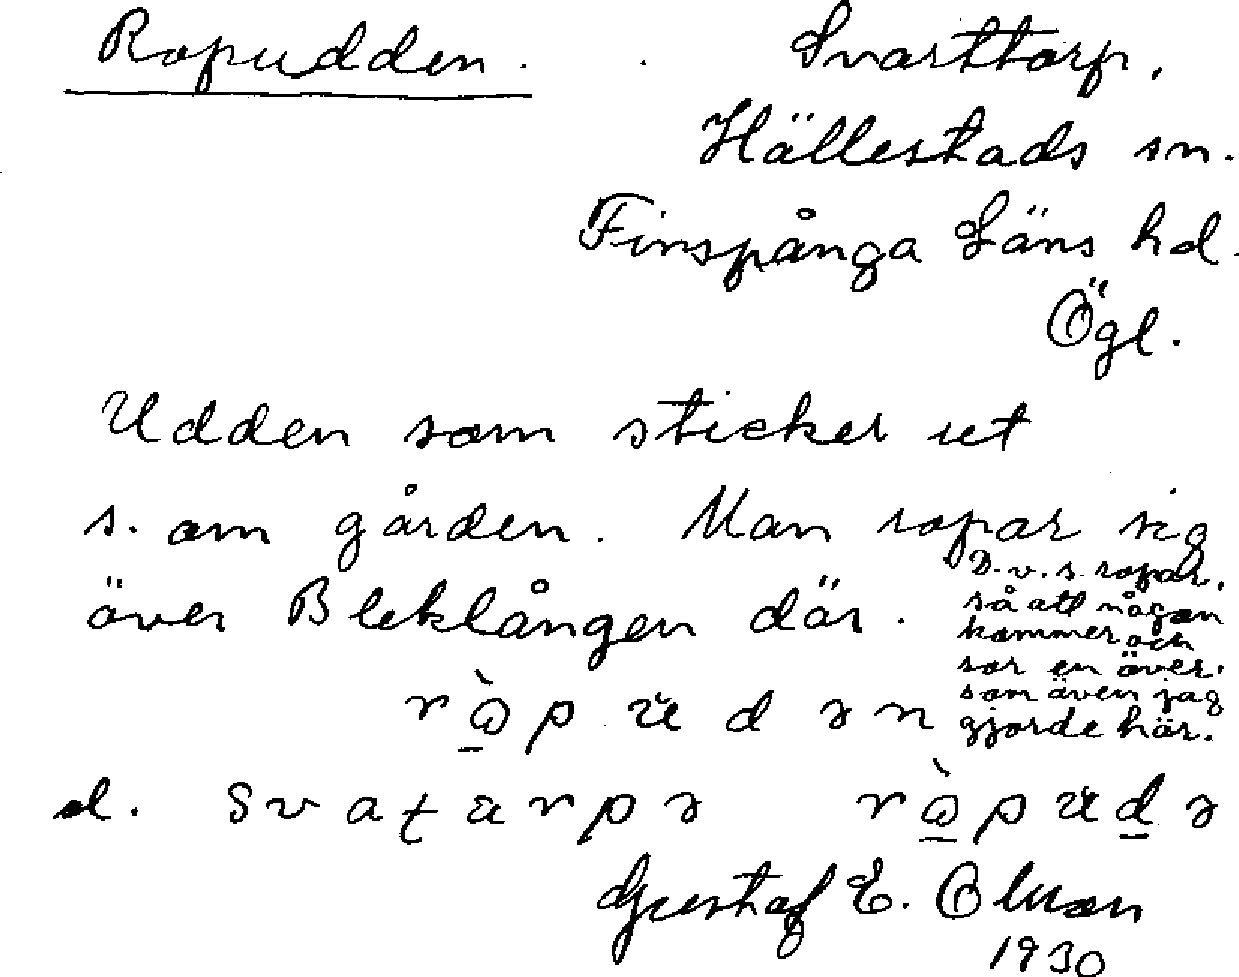 Ropudden. Svarttorp,
Hällestads sn.
Finspånga Läns hd.
Ögl.
Udden som sticker ut
s. om gården. Man ropar sig
över Bleklången där.
D.v.s. ropar,
så att någon
kommer och
ror en över,
som även jag
gjorde här.
d.
Gustaf E. Olman
1930